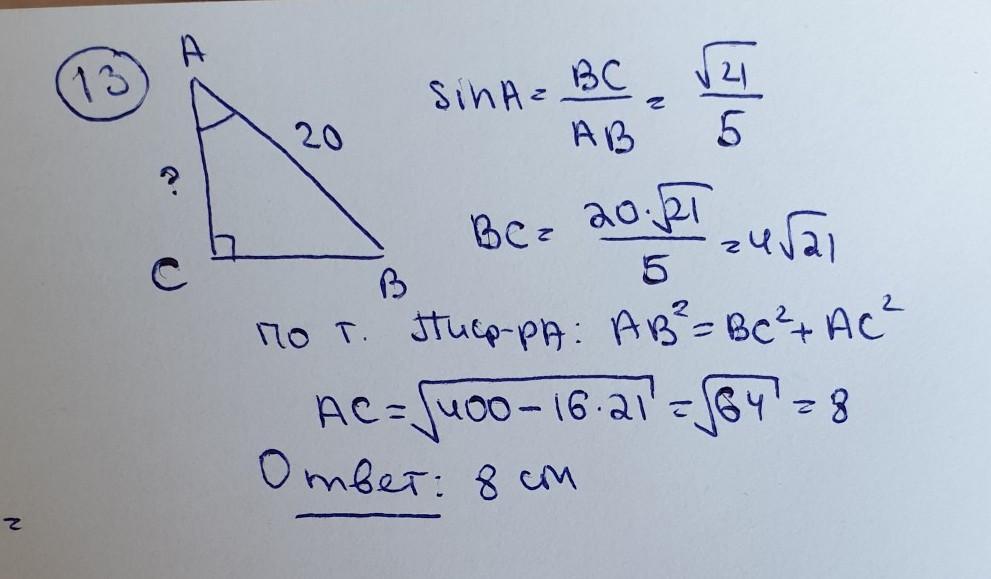 13
A
20
?
C
B
sinA = BC/AB = √21/5
BC = 20·√21/5 = 4√21
по т. Пиф-рА: AB² = BC² + AC²
AC = √400-16·21 = √64 = 8
Ответ: 8 см
=